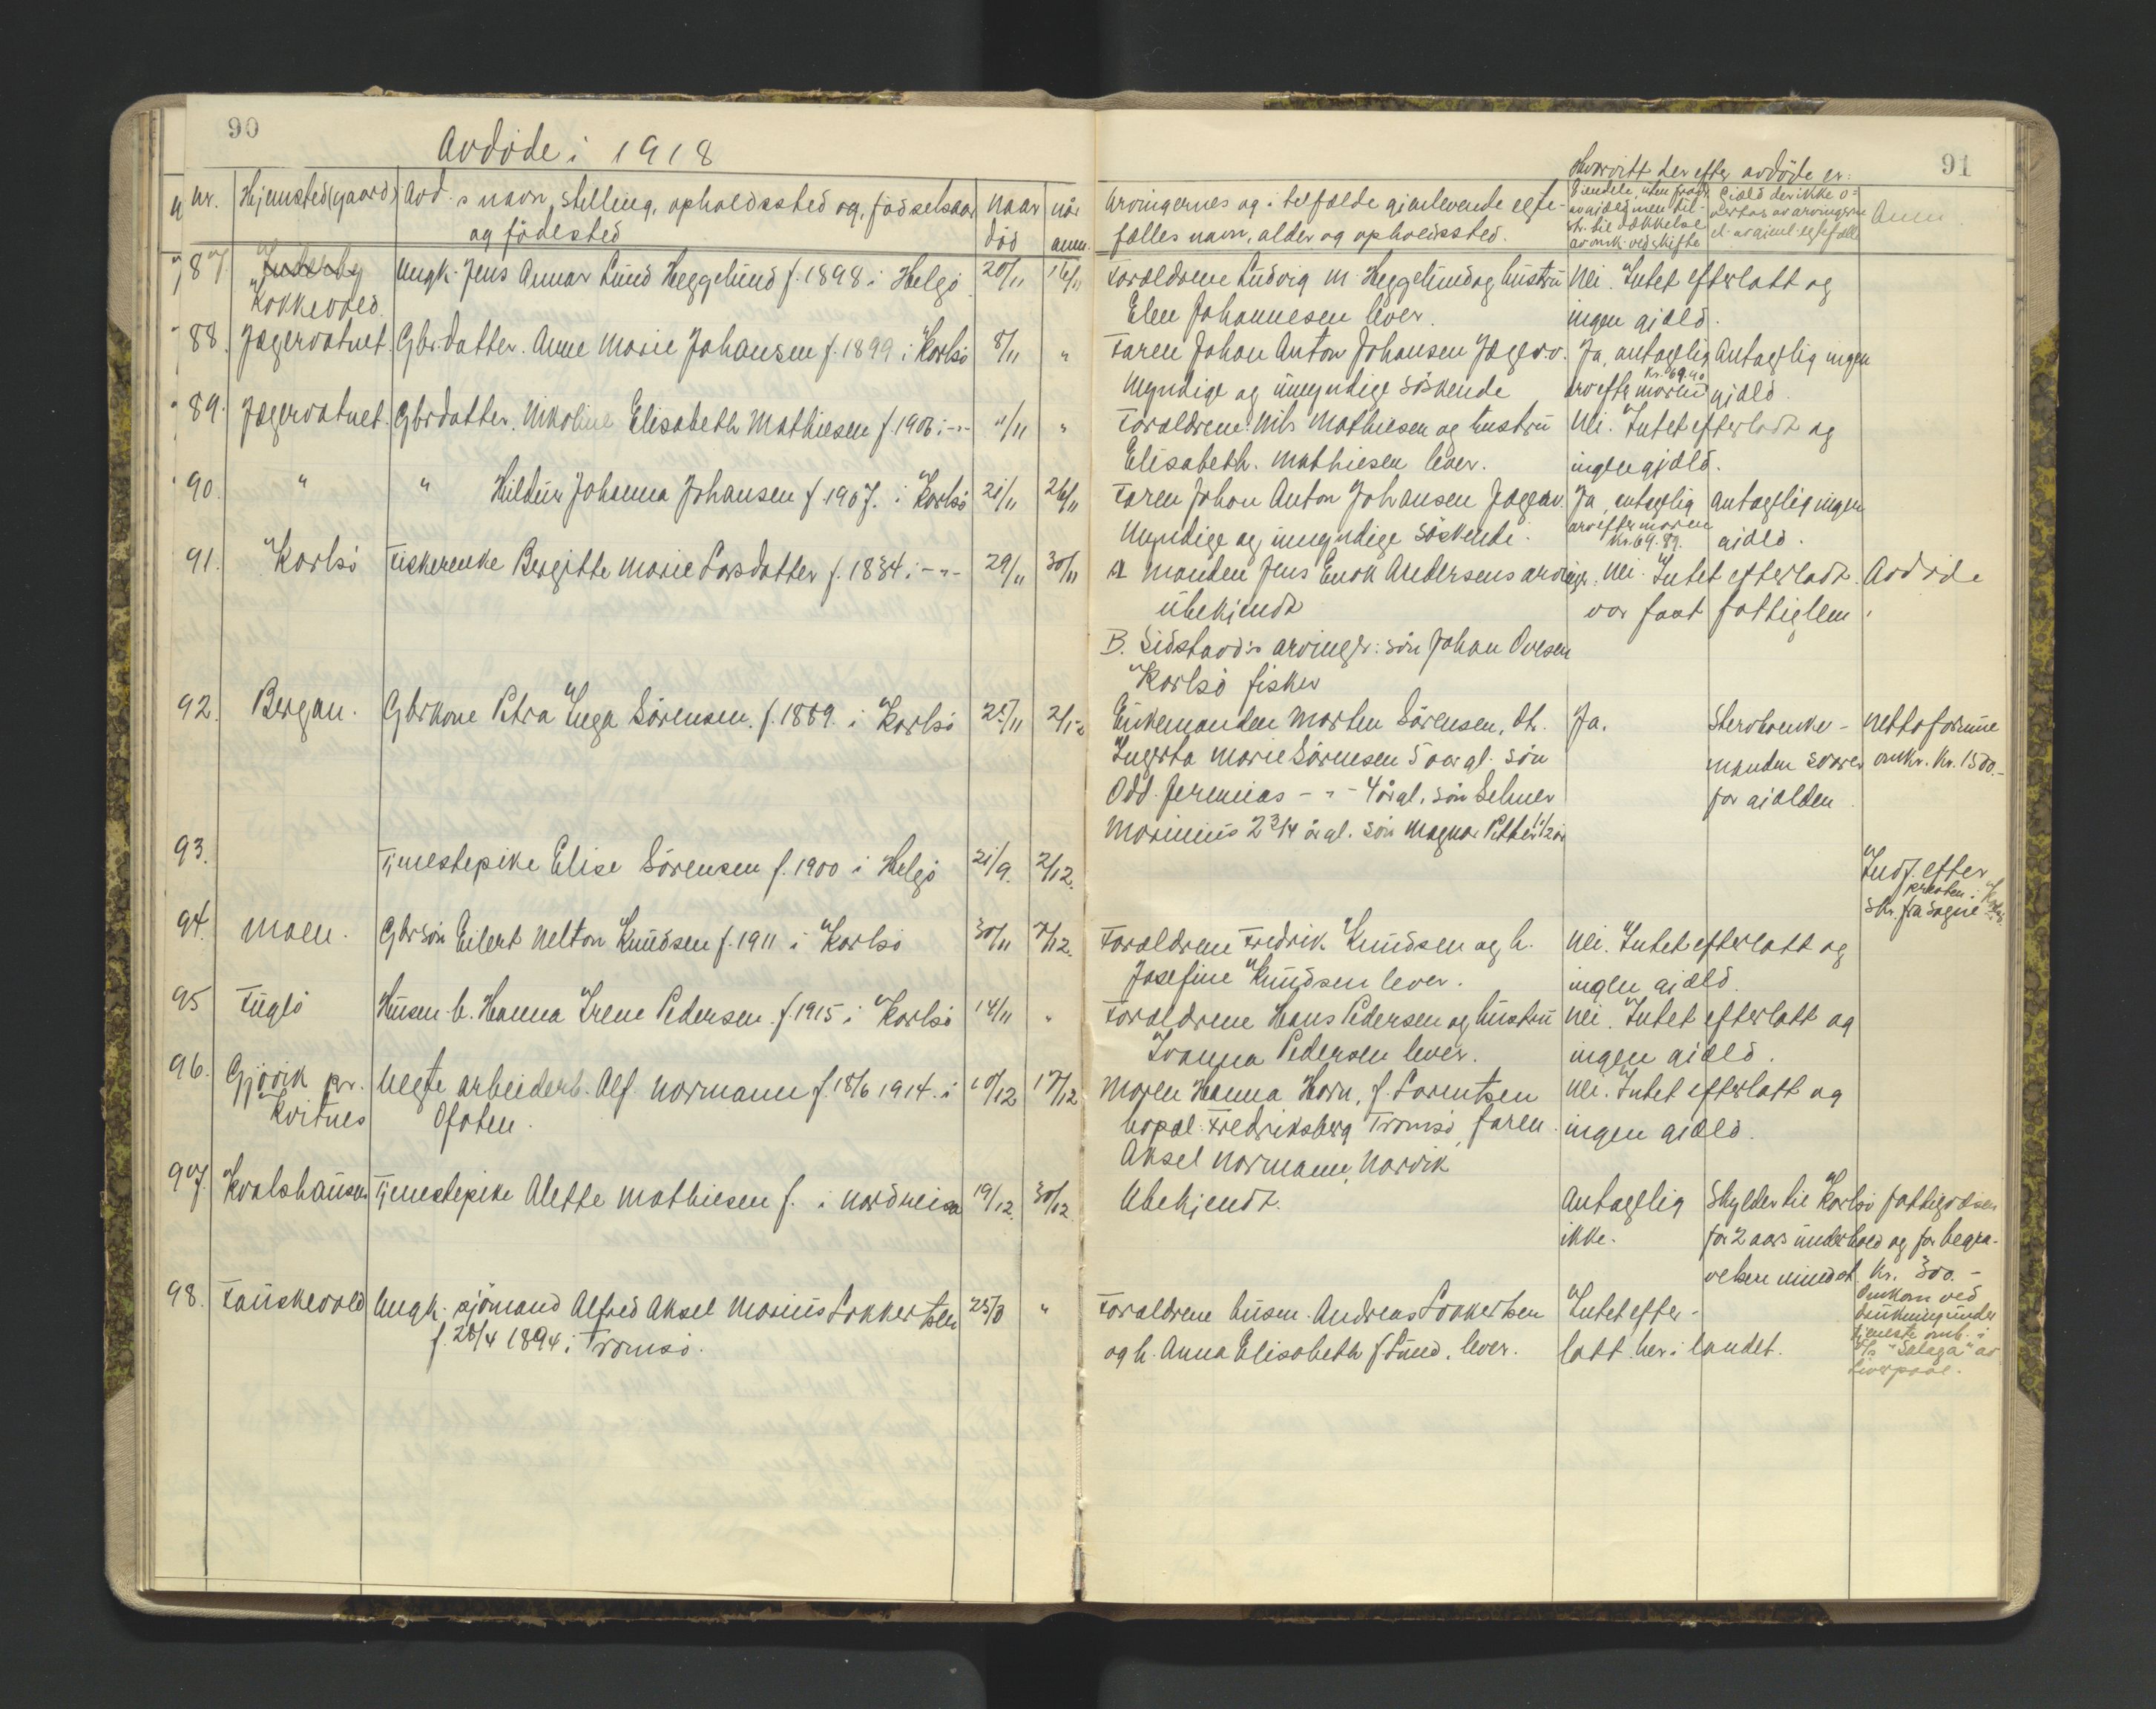 90
Avdöde i 1918
nr. Hjemsted(gaard) Avd.s navn, stilling, opholdssted og, födselsaar Naar når
og födested död anm.
87. Kokkevold. Ungk. Jens Annar Lund Heggelund f. 1898 i Helgö 20/11
88. Jægervatnet. Gbr.datter. Anne Marie Johansen f. 1899 i Karlsö 8/11 "
89. Jægervatnet. Gbrdatter. Nikoline Elisabeth Mathiesen f. 1906 i -"- 11/11 "
90. " " Hildur Johanna Johansen f. 1907. i Karlsö 21/11 26/11
91. Karlsö Fiskerenke Bergitte Marie Larsdatter f. 1834 i -"- 29/11 30/11
92. Bergan. Gbrkone Petra Inga Sörensen. f. 1889 i Karlsö 25/11 2/12
93. Tjenestepike Elise Sörensen f. 1900 i Helgö 21/9. 2/12.
94. Moen. Gbrsön Eilert Nelton Knudsen f. 1911 i Karlsö 30/11 7/12.
95 Fuglö Husm.b. Hanna Irene Pedersen. f. 1915 i Karlsö 14/11 "
96. Gjövik pr. Uegte arbeiderb. Alf Normann f. 18/6 1914. i 10/12 17/12
Kvitnes Ofoten.
97. Kvalshausen Tjenestepike Alette Mathiesen f. i Nordreisa 19/12. 30/12.
98. Fauskevold Ungk. sjömand Alfred Aksel Marius Lokkertsen 25/8 "
f. 28/4 1894 i Tromsö.
91
Hvorvitt der efter avdöde er:
Arvingernes og i tilfælde gjenlevende egte-
fælles navn, alder og opholdssted.
Eiendele, uten fradr.
av gjæld men til-
str. til dækkelse
av omk. ved skifte
Gjæld der ikke o-
vertas av arvingerne
el. av gjenl. egtefælle
Anm
Forældrene Ludvig M. Heggelund og hustru Nei. Intet efterlatt og
Elen Johannesen lever. ingen gjæld.
Faren Johan Anton Johansen Jægerv. Ja, antagelig Antagelig ingen
Myndige og umyndige söskende arv efter moren gjæld.
Forældrene Nils Mathiesen og hustru Nei. Intet efterladt og
Elisabeth. Mathiesen lever. ingen gjæld.
Faren Johan Anton Johansen Jægerv. Ja, antagelig Antagelig ingen
Myndige og umyndige söskende. arv efter moren gjæld.
kr. 69.89.
A Manden Jens Enok Andersens arvinger. Nei. Intet efterladt. Avdöde
ubekjendt var fast fattiglem.
B. Sidstavd:s arvinger: sön Johan Ovesen
Karlsö fisker
Enkemanden Morten Sörensen, dt. Ja. Stervboenke- Nettoformue
Ingerta Marie Sörensen 5 aar gl. sön manden svarer omkr. kr. 1500.-
Odd Jeremias -"- 4 år gl. sön Selmer for gjælden
Marinius 2 3/4 år gl. sön Magnar Petter 1 1/2 år
Indf. efter
skr. fra sogne-
presten i
Forældrene Fredrik Knudsen og h. Nei. Intet efterlatt og
Josefine Knudsen lever. ingen gjæld.
Forældrene Hans Pedersen og hustru Nei. Intet efterlatt og
Ivanna Pedersen lever. ingen gjæld.
Moren Hanna Horn, f. Lorentsen Nei. Intet efterlatt og
bopæl: Fredriksberg Tromsö, faren ingen gjæld.
Aksel Normann, Narvik
Ubekjendt. Antagelig Skylder til Karlsö fattigvæsen
ikke. for 2 aars underhold og for begra-
velsen mindst kr. 300.-
Forældrene husm. Andreas Lokkertsen Intet efter-
og h. Anna Elisabeth f. Lund, lever. latt her i landet.
Omkom ved
drukning under
tjeneste omb. i
S/s "Salaga" av
Liverpool.